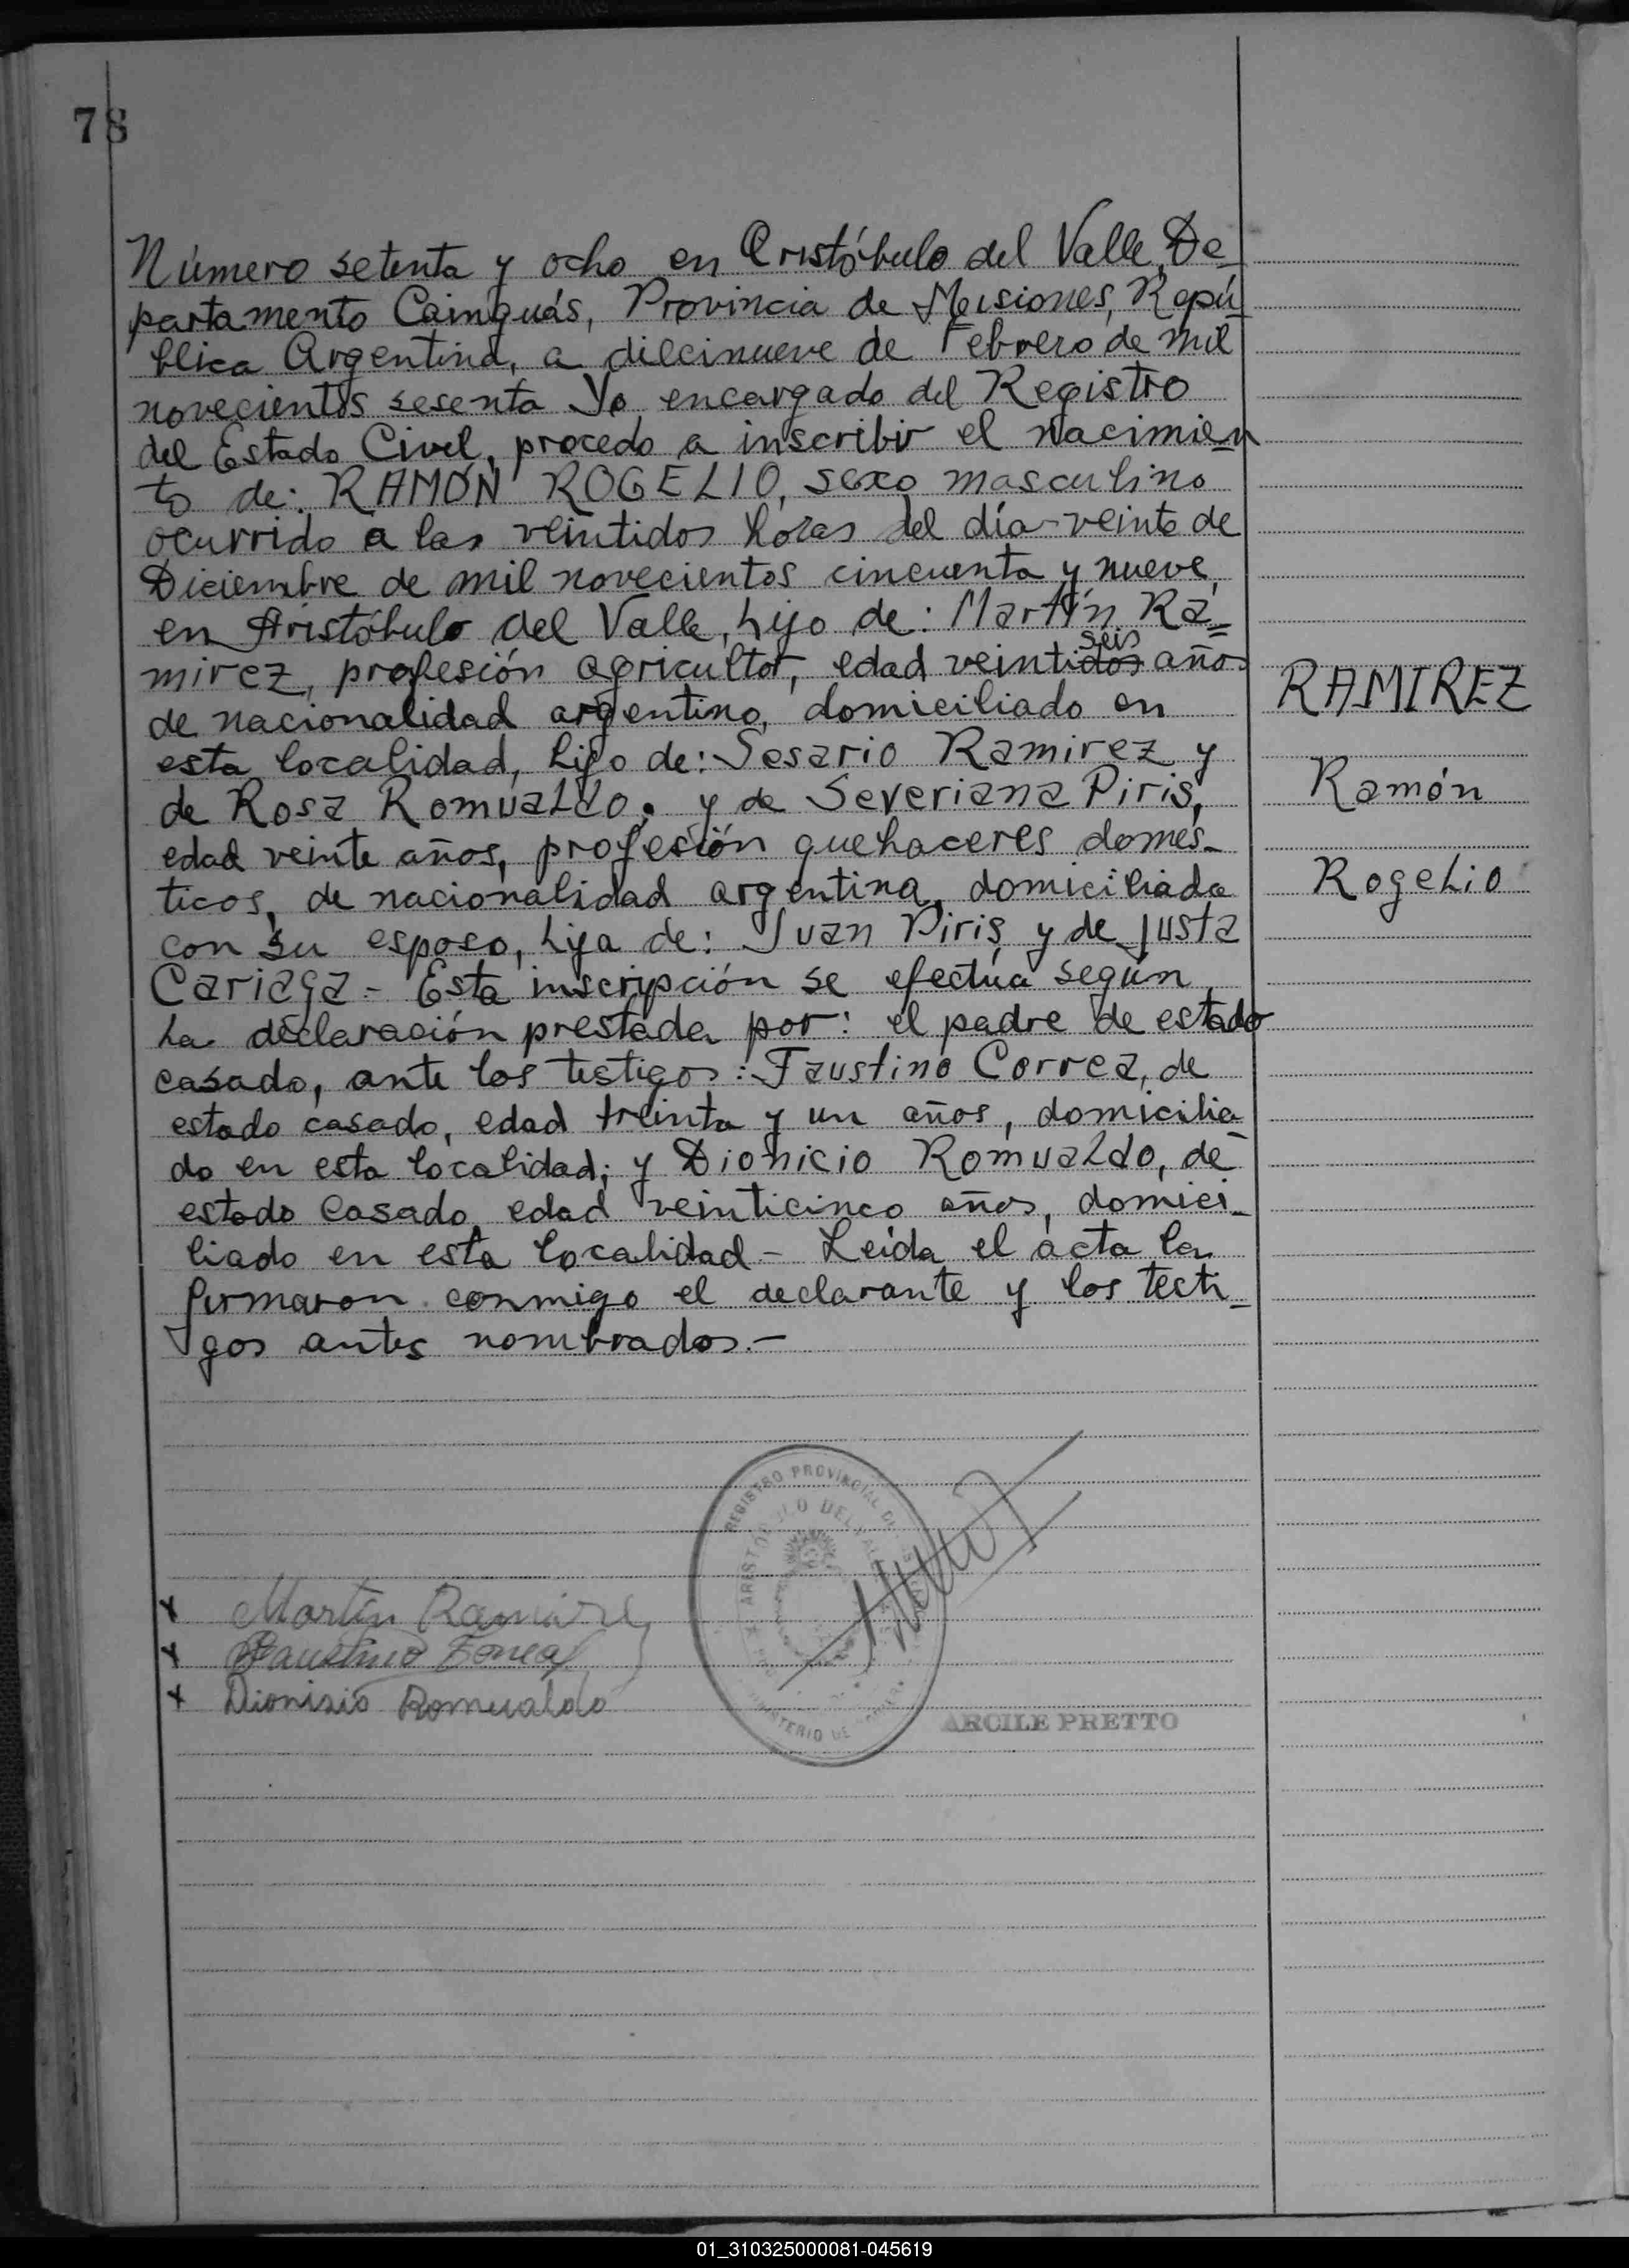 78
Número setenta y ocho en Aristóbulo del Valle, De-
partamento Cainguás, Provincia de Misiones, Repú-
blica Argentina, a diecinueve de Febrero de mil
novecientos sesenta Yo encargado del Registro
del Estado Civil, procedo a inscribir el nacimien
to de: RAMÓN ROGELIO, sexo masculino
ocurrido a las veintidos horas del día veinte de
Diciembre de mil novecientos cincuenta y nueve,
en Aristóbulo del Valle, hijo de: Martín Ra=
seis
mirez, profesión agricultor, edad veintidos años
de nacionalidad argentino, domiciliado en
esta localidad, hijo de: Sesario Ramirez y
de Rosa Romualdo, y de Severiana Piris,
edad veinte años, profesión quehaceres domés-
ticos, de nacionalidad argentina, domiciliada
con su esposo, hija de: Juan Piris y de Justa
Cariaga - Esta inscripción se efectúa según
la declaración prestada por: el padre de estado
casado, ante los testigos: Faustino Correa, de
estado casado, edad treinta y un años, domicilia-
do en esta localidad; y Dionicio Romualdo, de
estado casado, edad veinticinco años, domici-
liado en esta localidad - Leída el acta la
firmaron conmigo el declarante y los testi-
gos antes nombrados.-
RAMIREZ
Ramón
Rogelio
REGISTRO PROVINCIAL DE
ARISTOBULO DEL VALLE
MINISTERIO DE
x Martin Ramirez
x Faustino Correa
x Dionisio Romualdo
ARCILE PRETTO
01_310325000081-045619